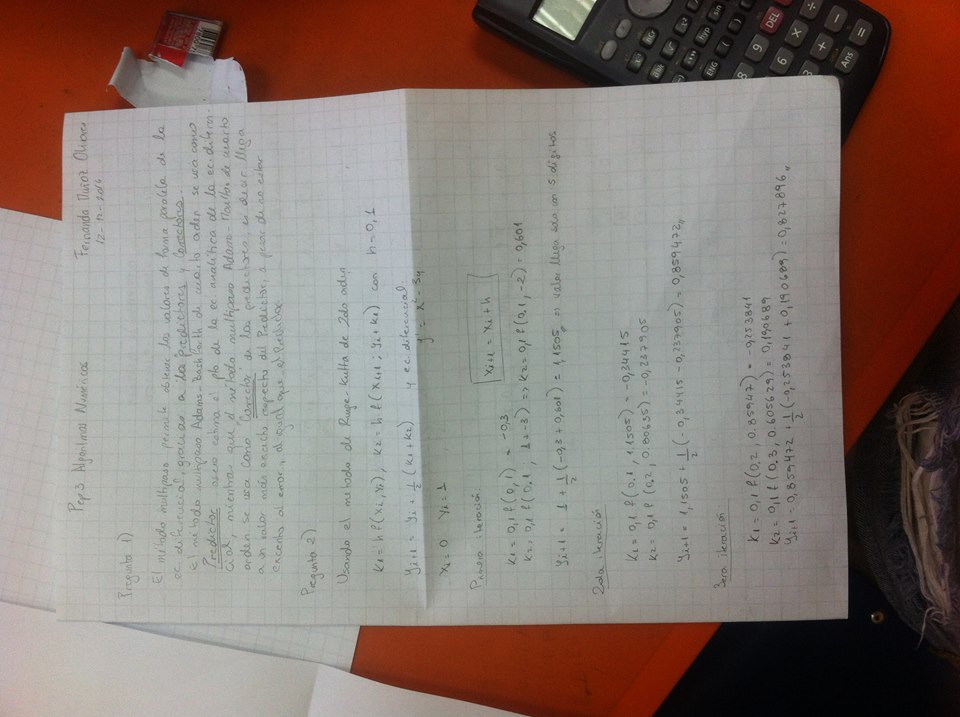 Pep 3 Algoritmos Numéricos
Fernanda Muñoz Olivares
12-12-2016
Pregunta 1)
El método multipaso permite obtener los valores de forma paralela de la
ec. diferencial, gracias a los predictores y correctores.
El método multipaso Adams-Bashforth de cuarto orden se usa como
Predictor, o sea estima el pto de la ec. analítica de la ec. diferen-
cial, mientras que el método multipaso Adams-Moulton de cuarto
orden se usa como "Corrector" de los predictores, es decir llega
a un valor más exacto respecto del Predictor, a pesar de no estar
excento al error, al igual que el Predictor.
Pregunta 2)
Usando el método de Runge-Kutta de 2do orden
K1 = h f(xi, yi), K2 = h f(xi+1; yi+k1) con h=0,1
yi+1 = yi + 1/2 (K1+K2) y ec. diferencial:
y' = x² - 3y
xi = 0 yi = 1
Primera iteración:
xi+1 = xi + h
K1 = 0,1 f(0,1) = -0,3
K2 = 0,1 f(0.1, 1+-3) => K2 = 0,1 f(0,1, -2) = 0,601
yi+1 = 1 + 1/2 (-0,3 + 0,601) = 1,1505 => valor llega solo con 5 dígitos
2da iteración
K1 = 0,1 f(0.1, 1,1505) = -0,34415
K2 = 0,1 f(0.2, 0.80635) = -0,237905
yi+1 = 1,1505 + 1/2 (-0,34415 - 0,237905) = 0,859472
3era iteración
K1 = 0,1 f(0.2, 0.85947) = -0,253841
K2 = 0,1 f(0.3, 0.605629) = 0,190689
yi+1 = 0,859472 + 1/2 (-0,253841 + 0,190689) = 0,827896
hyp
sin
ENG
(
)
8
9
DEL
6
×
÷
+
-
Ans
=